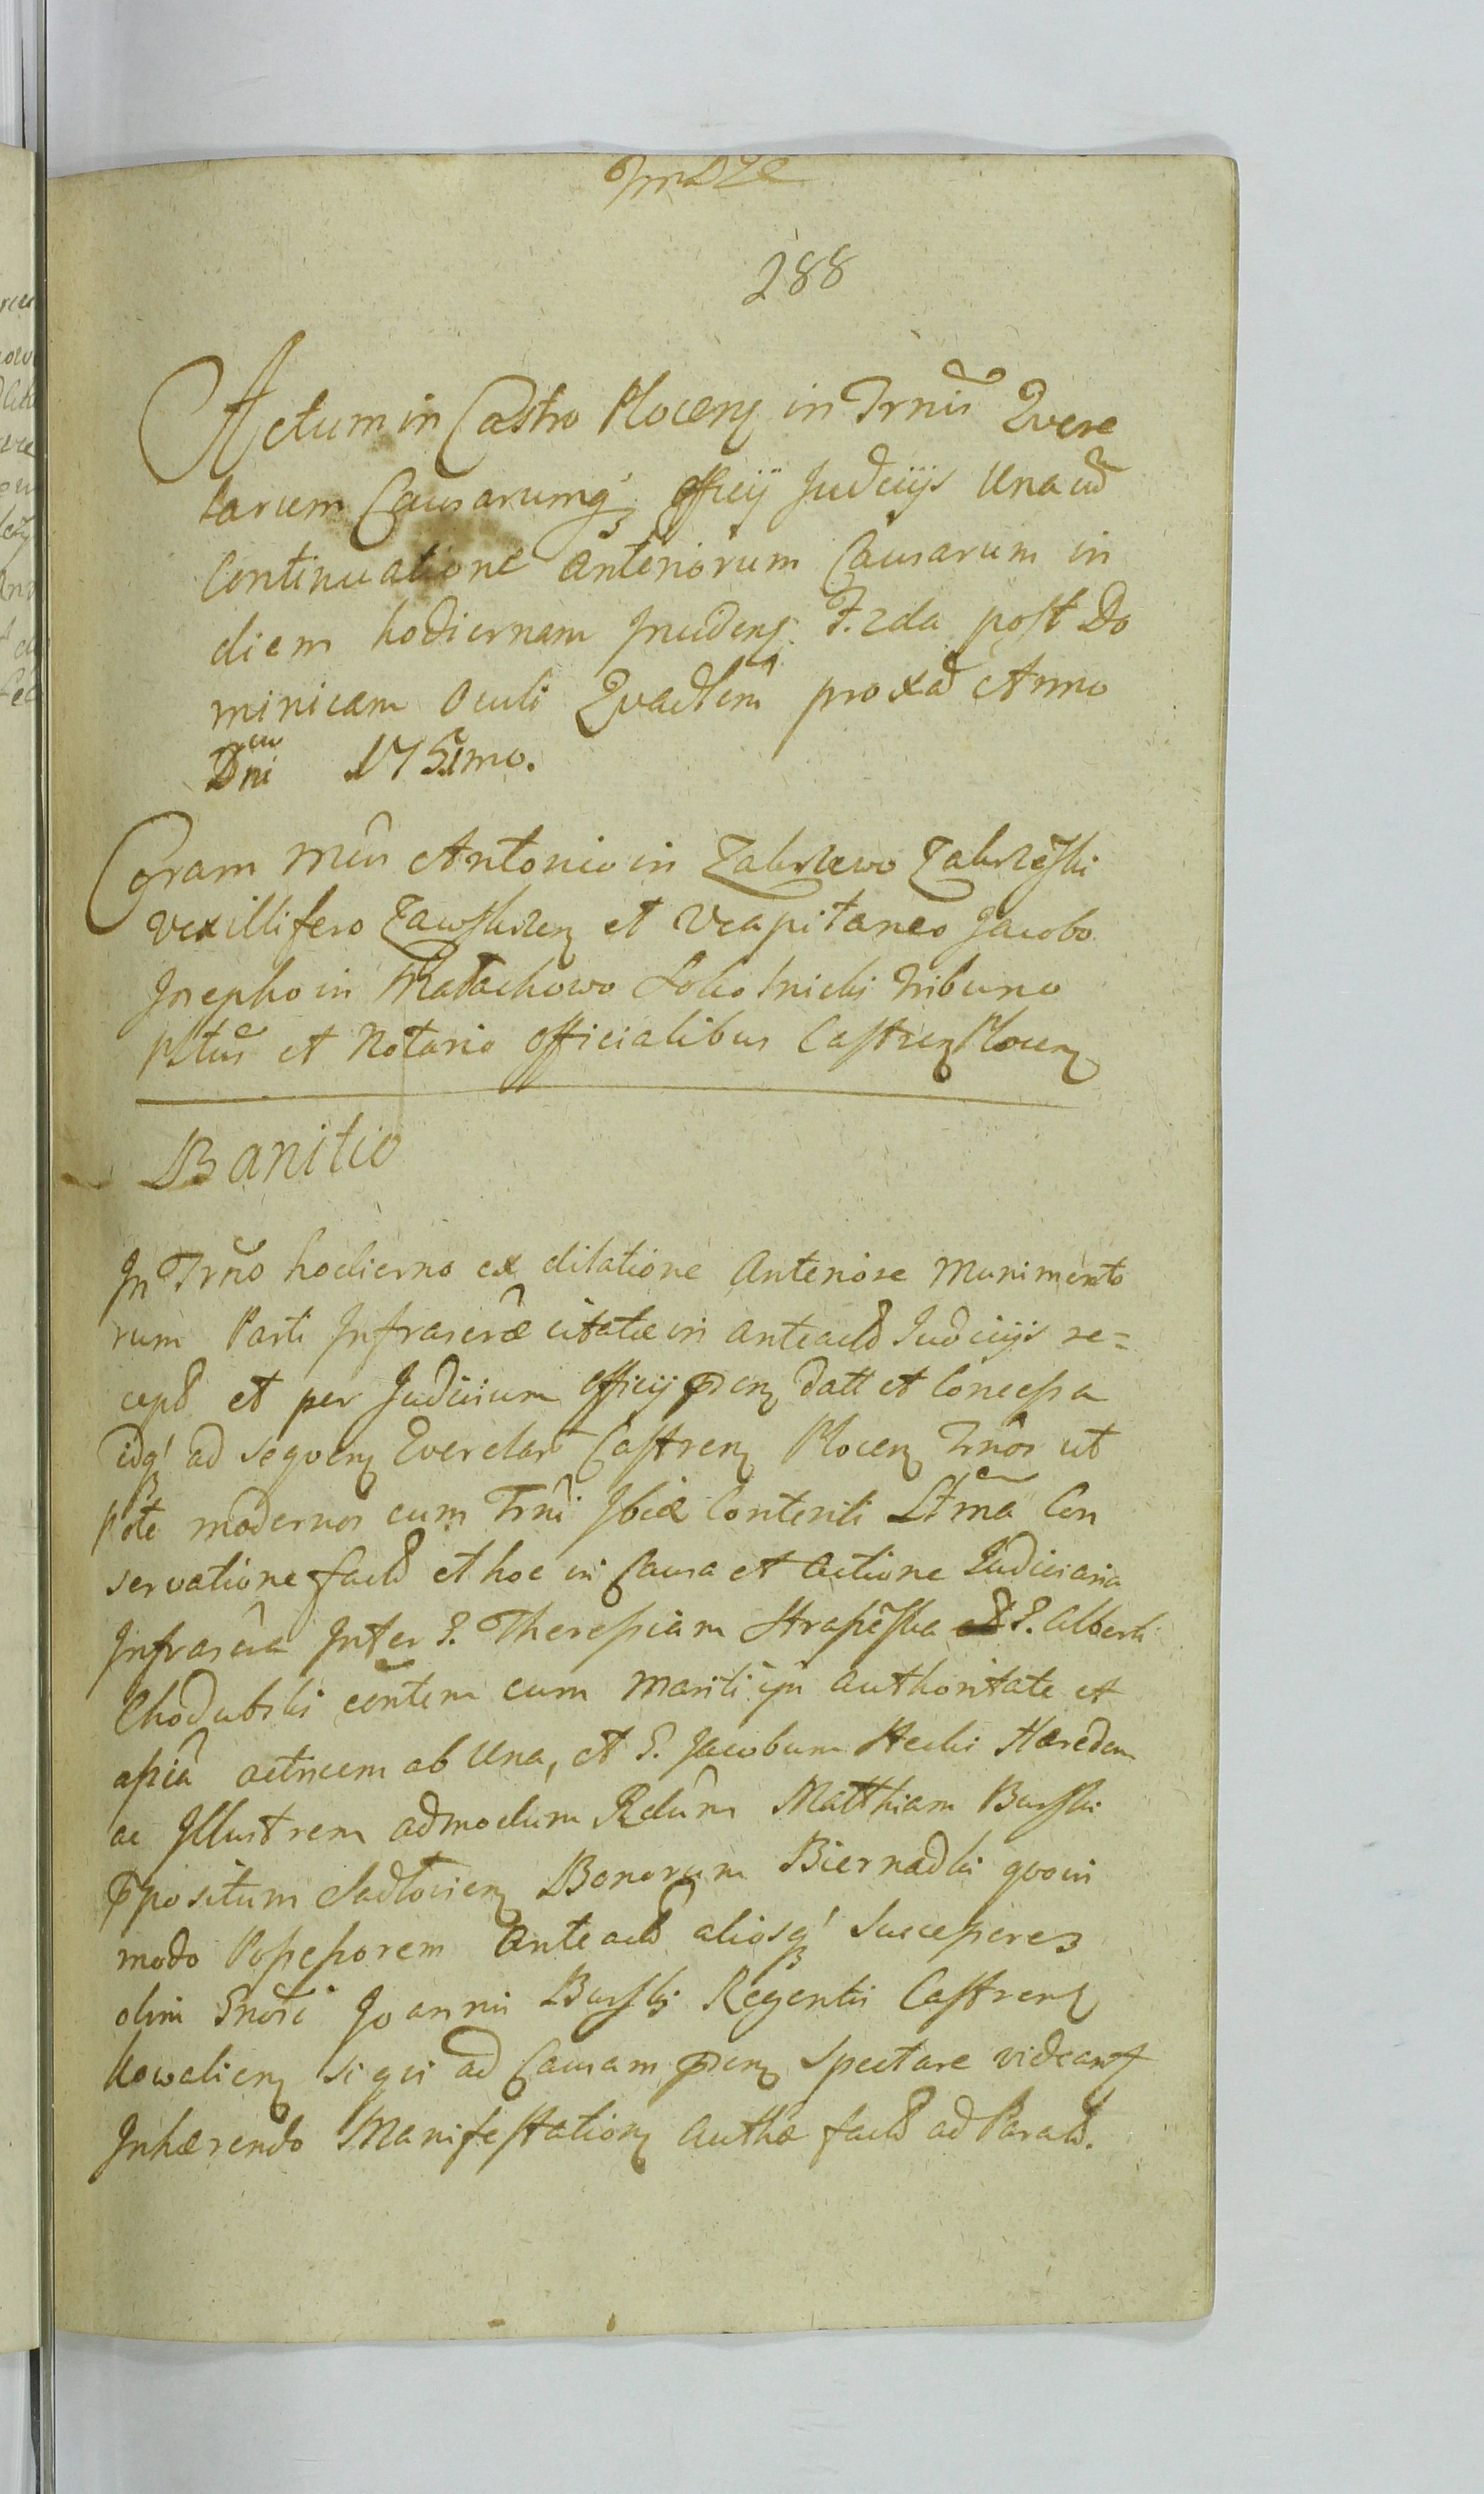 288
Actum in Castro Plocen in Trnis Quere
larum Causarumq Officij Judiciis Una cũ
Continuatione anteriorum Causarum in
diem hodiernam Inciden F. 2da post Do
minicam Oculi Qvadlem proxã Anno
Dni 1751mo.
Coram Mcis Antonio in Zakrzewo Zakrzeski
Vexillifero Zawskrzen et Vcapitaneo Jacobo
Josepho in Małachowo Sokolnicki Tribuno
et Notario Officialibus Castren Plocen
Banitio
In Trño hodierno ex dilatione Anteriore Munimento
rum Parti Infrascræ citatæ in anteactis Judiciis re=
cept et per Judicium Officij præn datt et Concessa
idq ad seqven Qverelar Castren Plocen Trnos ut
pote modernos cum Trni Ibid Contenti Lt͠ma Con
servatione fact et hoc in Causa et Actione Judiciaria
Infrascra Inter G. Theressiam Strapeska G. Alberti
Chodubski contem cum Mariti sui Authoritate et
assia actricem ab Una, et G. Jacobum Hecki Hæredem
ac Illustrem admodum Rdum Matthiam Burski
Præpositum Sadłovien Bonorum Biernadki qvovis
modo Possessorem Anteact aliosq Successores
olim Gnosi Joannis Burskj Regentis Castren
Kowalien siqvi ad Causam præn Spectare videant
Inhærendo Manifestation Authæ fact ad Parat.